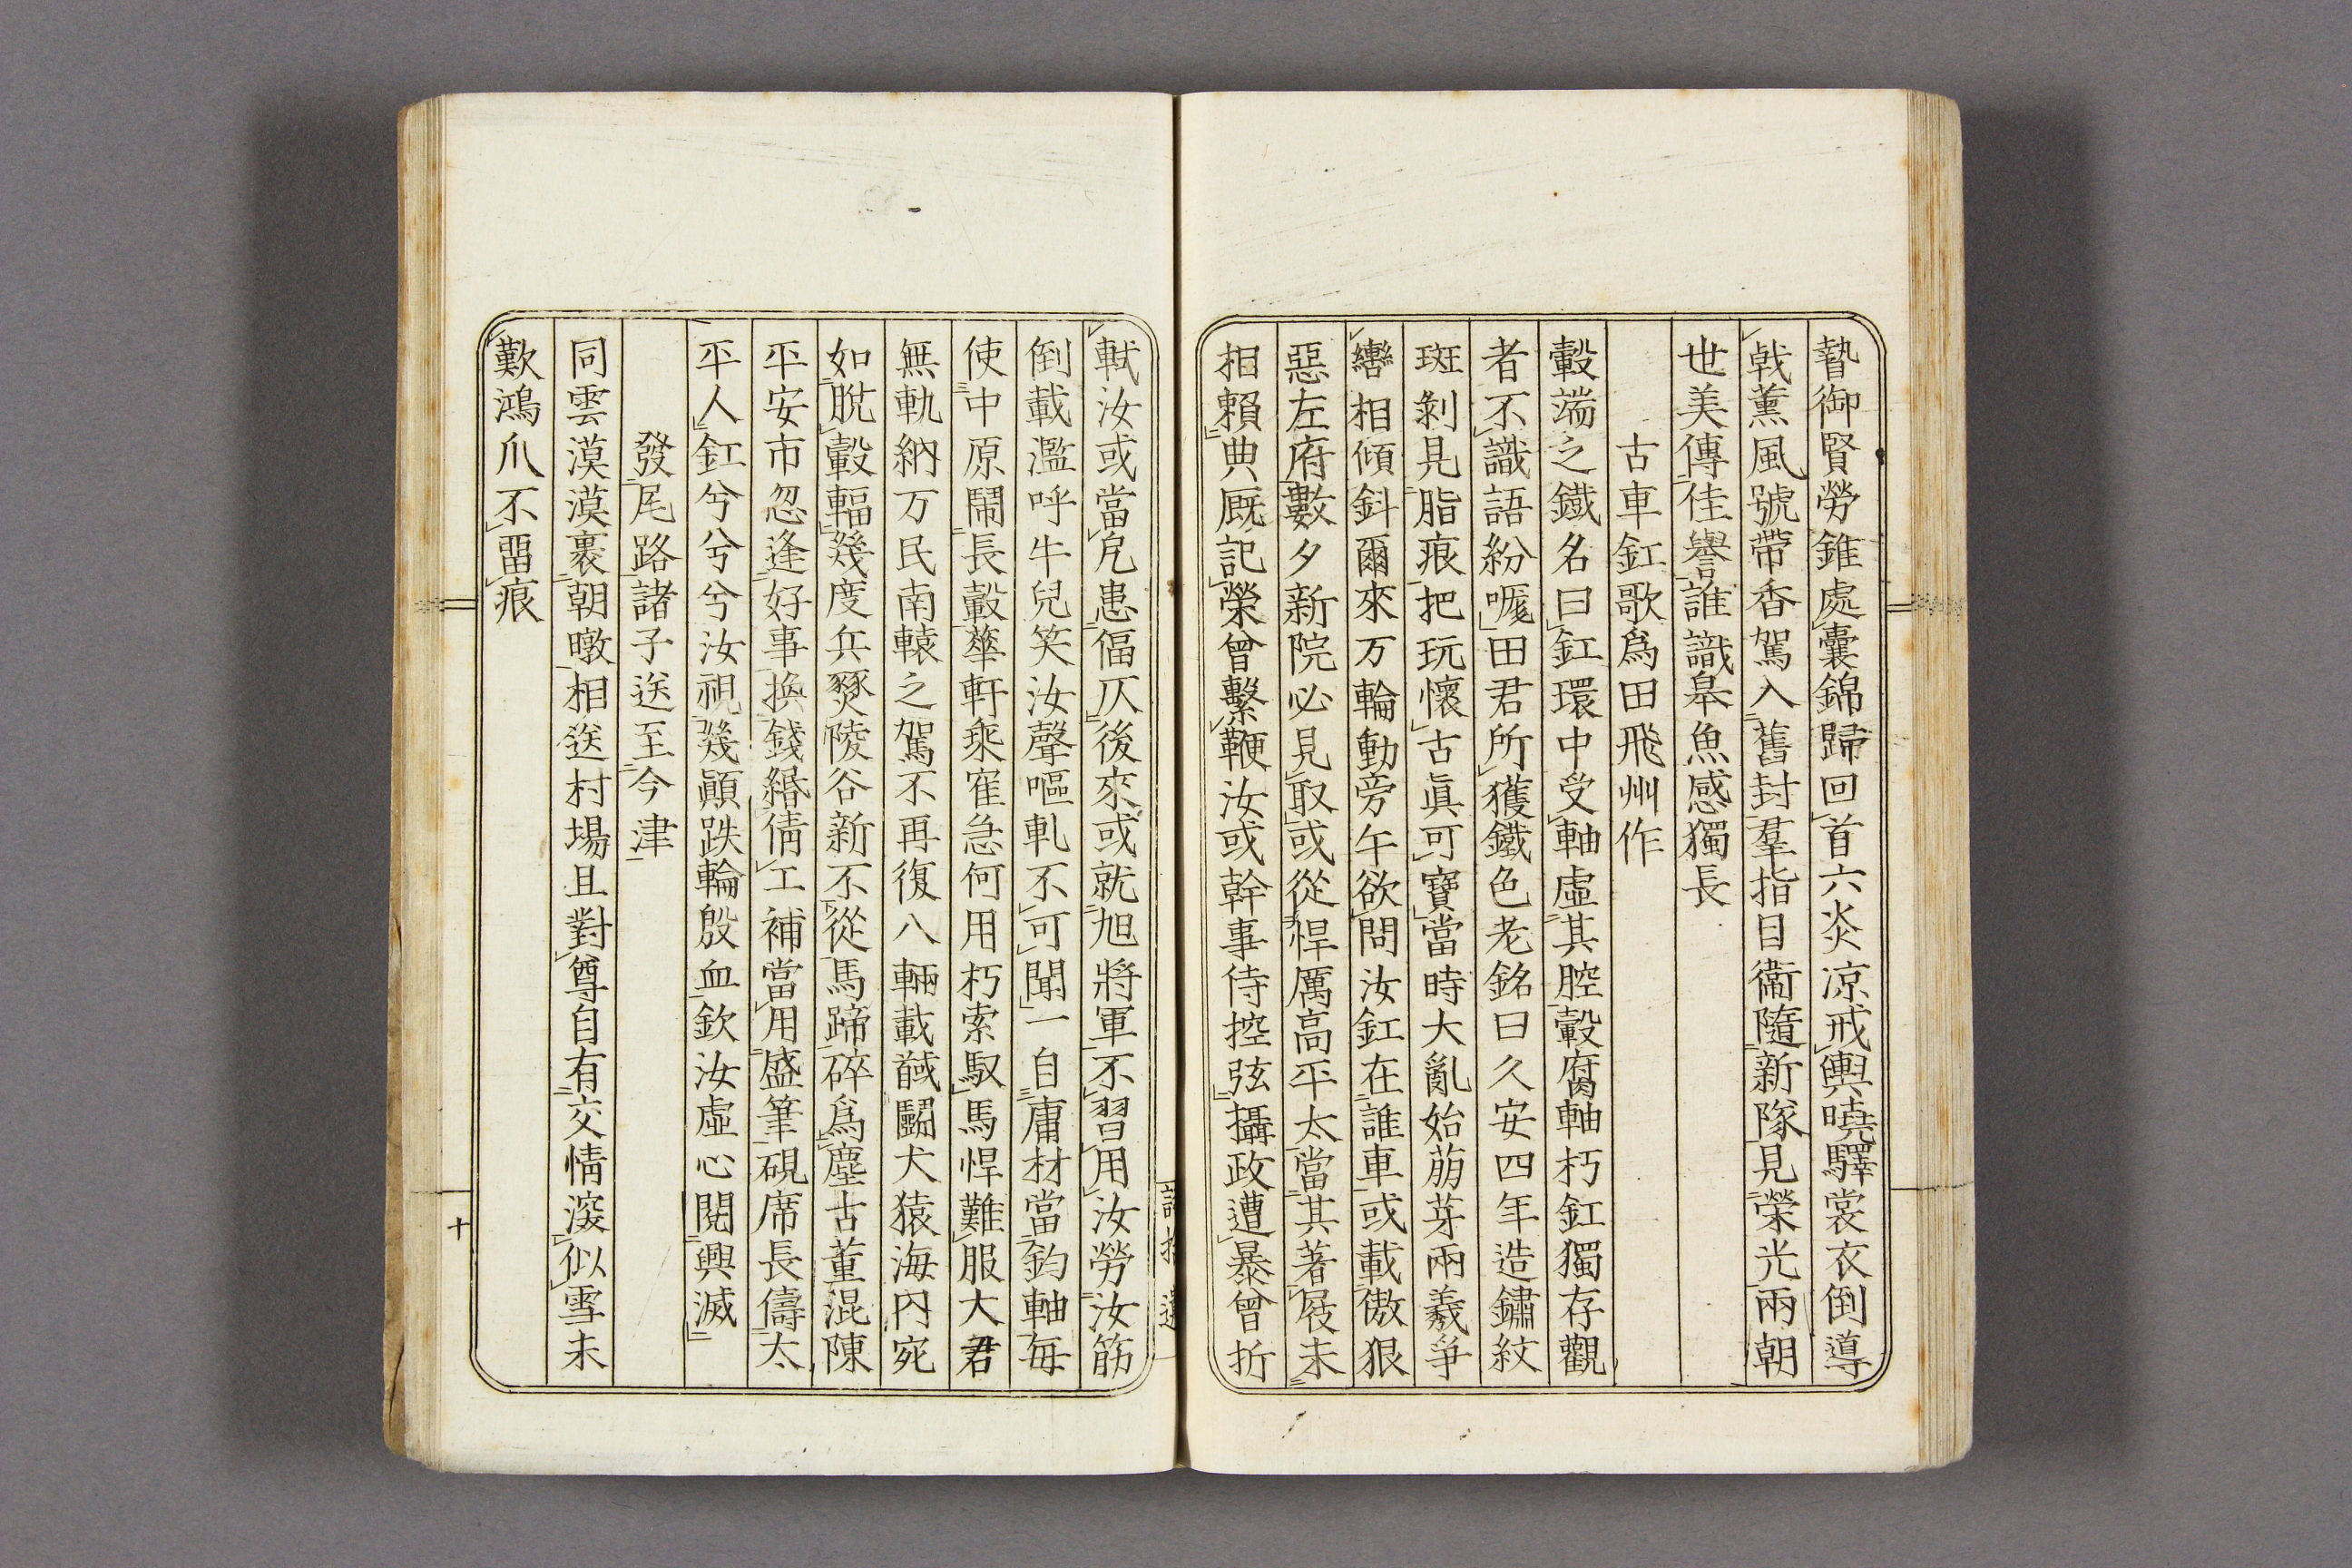 蟄御賢勞錐處囊錦歸回首六炎凉戒輿曉驛裳衣倒導
戟薰風號帶香駕入舊封羣指目衞隨新隊見榮光兩朝
世美傳佳譽誰識皋魚感獨長
古車釭歌爲田飛州作
轂端之鐵名曰釭環中受軸虛其腔轂腐軸朽釭獨存觀
者不識語紛嚨田君所獲鐵色老銘曰久安四年造鏽紋
斑剝見脂痕把玩懷古眞可寶當時大亂始萠芽兩羲爭
轡相傾斜爾來万輪動旁午欲問汝釭在誰車或載傲狠
惡左府數夕新院必見取或從悍厲高平太當其著屐未
相賴典厩記榮曾繫鞭汝或幹事侍控弦攝政遭暴曾折
軾汝或當凢患偪仄後來或就旭將軍不習用汝勞汝筋
倒載濫呼牛兒笑汝聲嘔軋不可聞一自庸材當鈞軸毎
使中原鬧長轂華軒乘寉急何用朽索馭馬悍難服大君
無軌納万民南轅之駕不再復八輛載馘鬪犬猿海內宛
如脫轂輻幾度兵燹陵谷新不從馬蹄碎爲塵古董混陳
平安市忽逢好事換錢緡倩工補當用盛筆硯席長儔太
平人釭兮兮兮汝視幾顚跌輪殷血欽汝虛心閱興滅
發尾路諸子送至今津
同雲漠漠裹朝暾相送村場且對尊自有交情深似雪未
歎鴻爪不畱痕
十